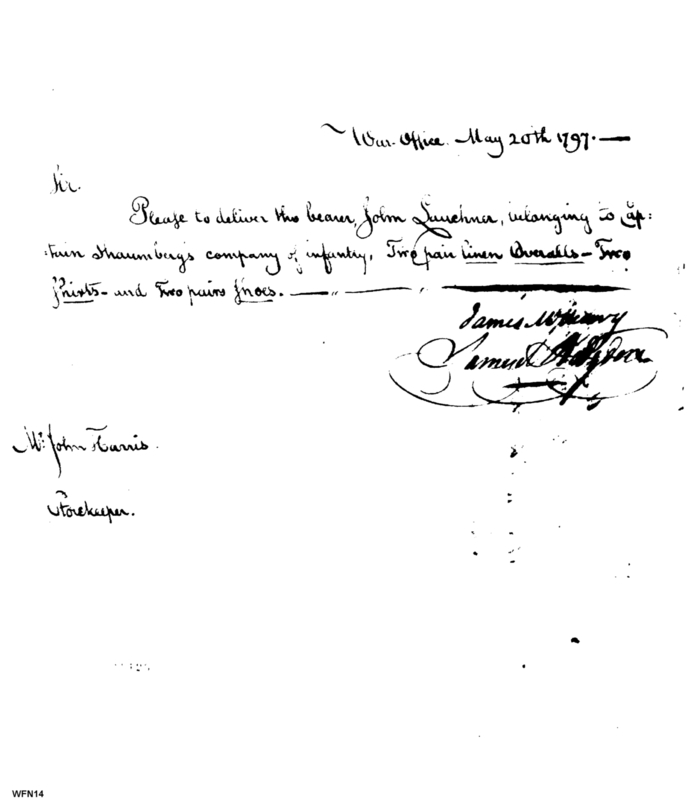 War Office May 20th 1797.
Sir.
Please to deliver the bearer, John Luuchner, belonging to Cap:
tain Shaumberg's company of infantry, Two pair linen Overalls - Two
Shirts - and Two pairs Shoes.
James McHenry
Samuel Hodgdon
Mr. John Harris
Storekeeper.
WFN14